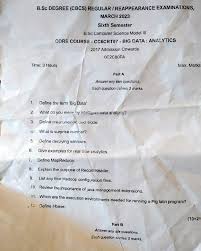 B.Sc DEGREE (CBCS) REGULAR / REAPPEARANCE EXAMINATIONS,
MARCH 2023
Sixth Semester
B.Sc Computer Science Model III
CORE COURSE - CC6CRT07 - BIG DATA ANALYTICS
2017 Admission Onwards
Time: 3 Hours
Part A
Answer any ten questions.
Each question carries 2 marks.
1. Define the term 'Big Data'.
2. What do you mean by
3. Define mean, median and mode.
4. What is surprise number?
5. Define decaying
6. Give examples for real time analytics.
7. Define MapReduce.
8. Explain the purpose of RecordReader.
9. List any four methods
10. Review the importance of Java management extensions.
11. When are the execution environments needed for running a Pig latin program?
12. Define Hbase.
Part B
Answer any six questions
Each question carries 5 marks